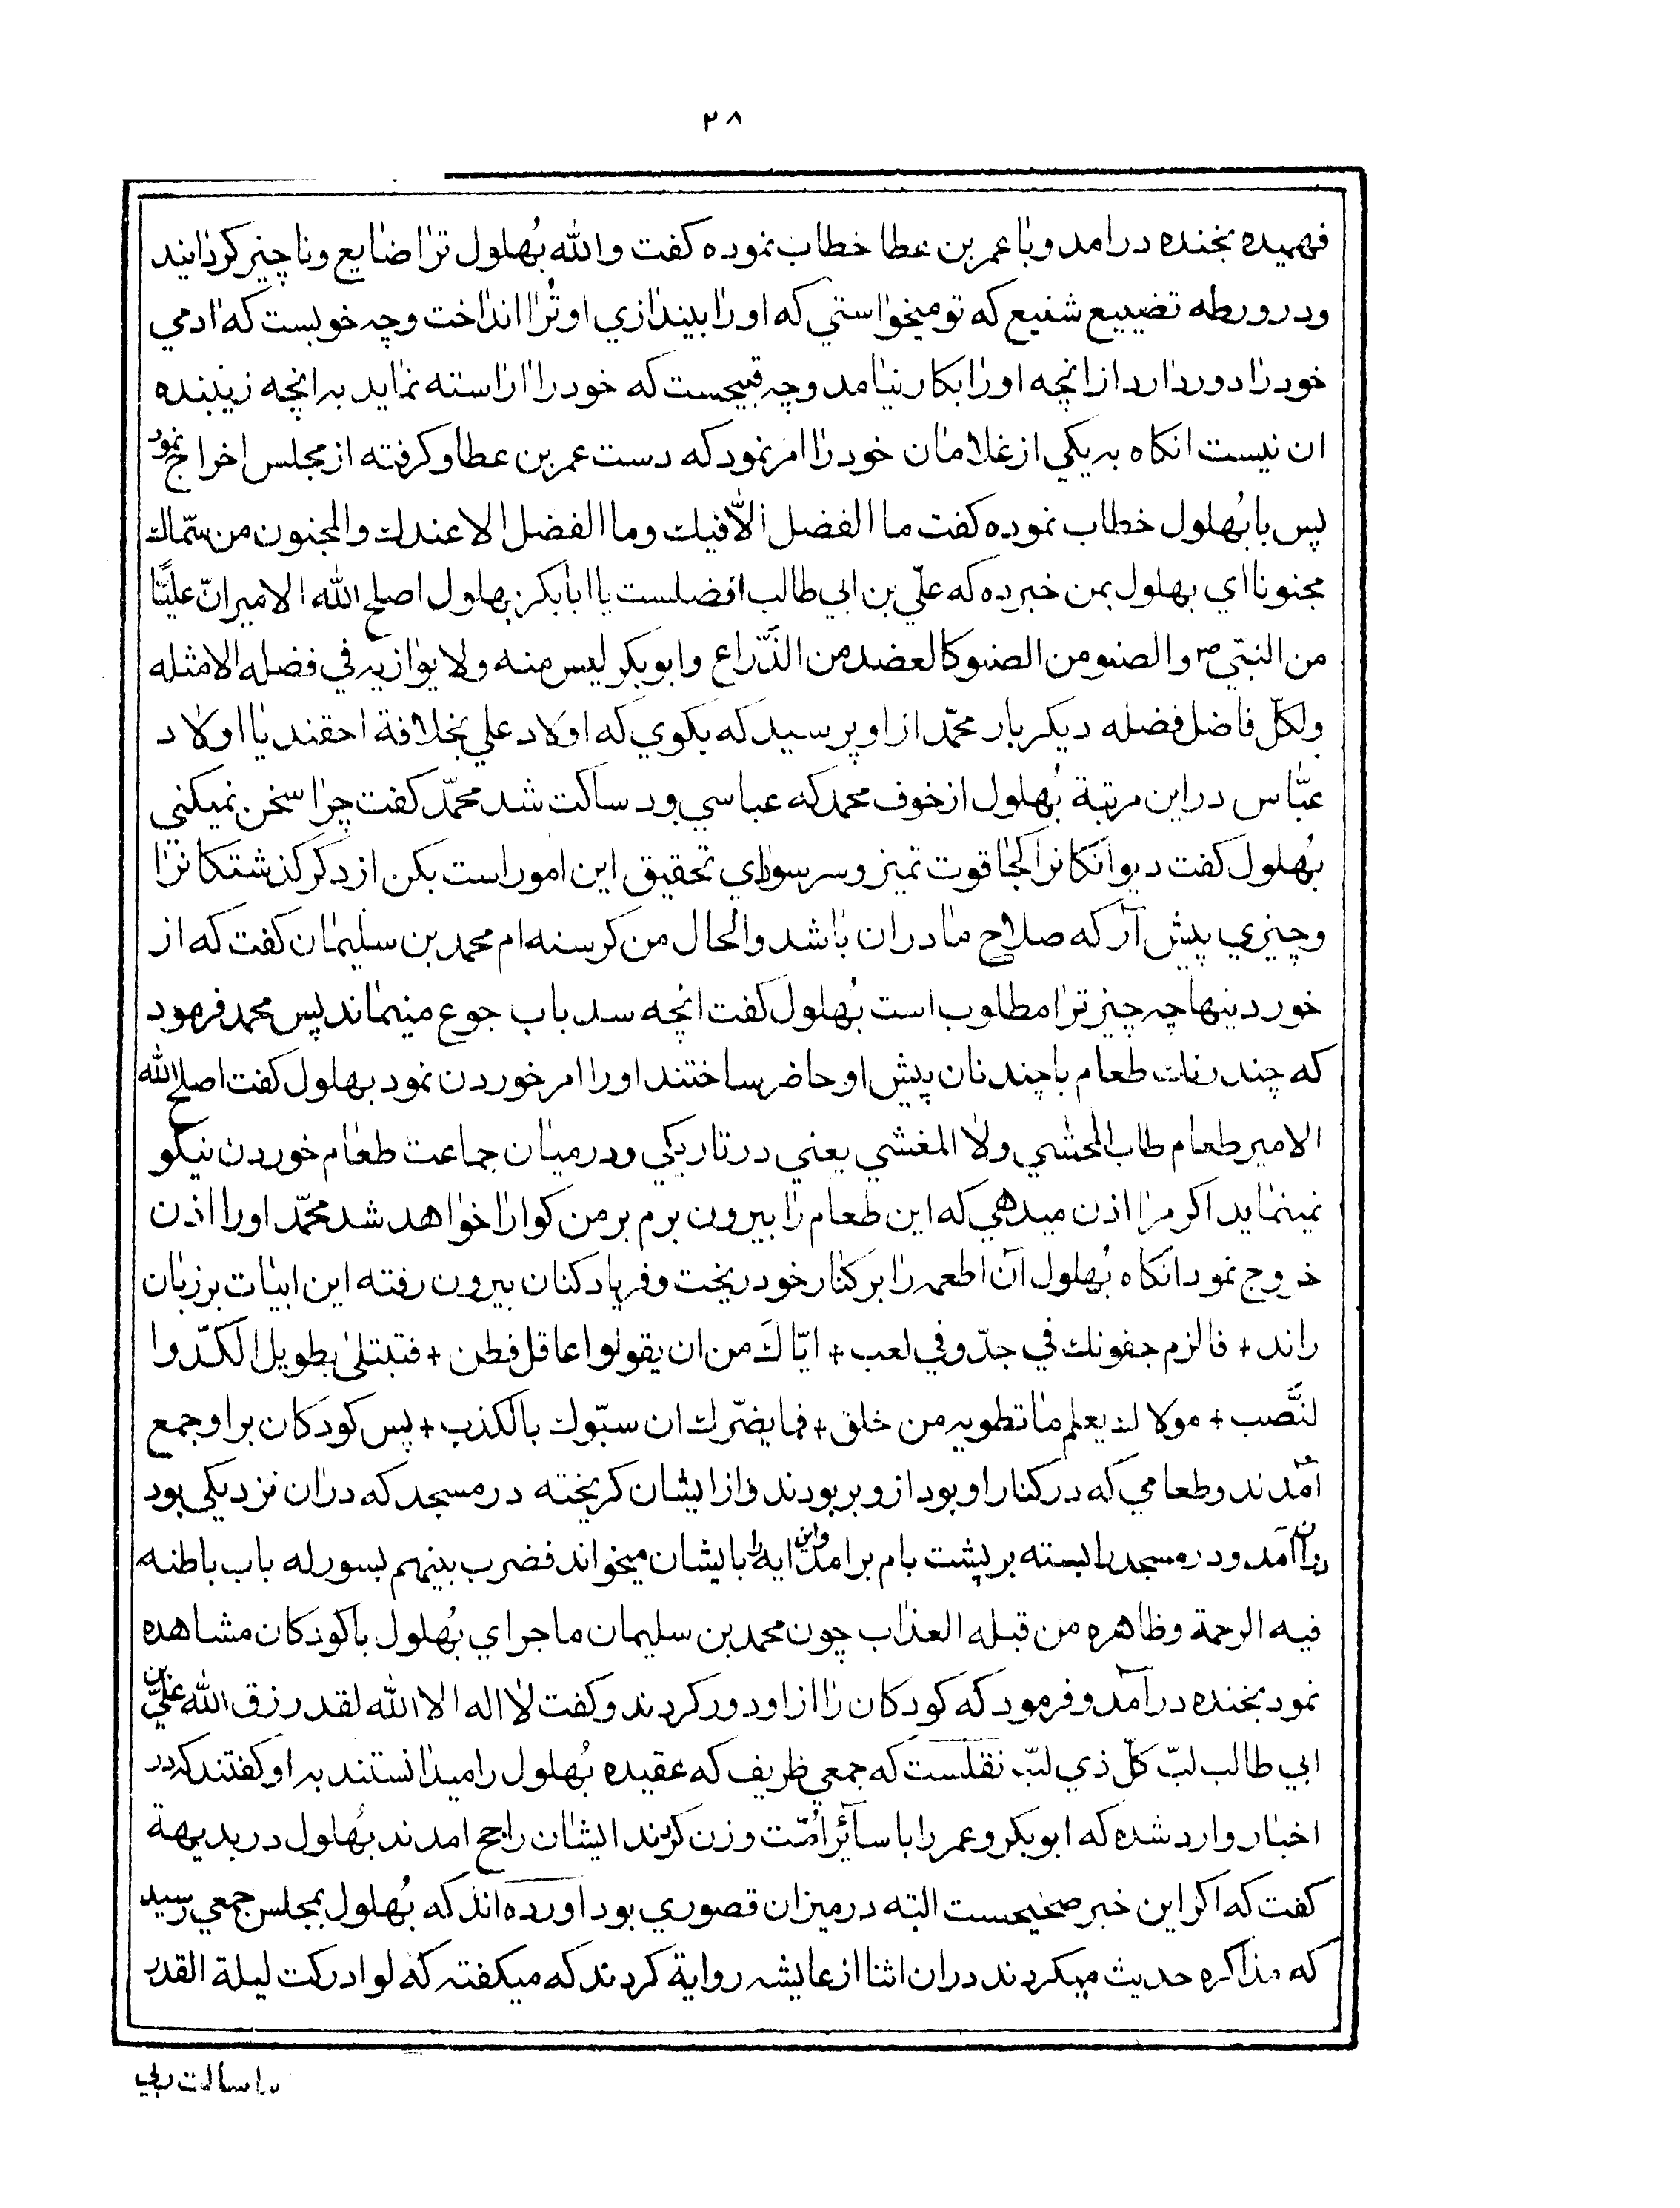 ۲۸
فهمیده بخنده درامد وبا عمر بن عطا خطاب نموده کفت والله بُهلول ترا ضایع وناچیز کردانید
ودر ورطه تضییع شنیع که تو میخواستي که اورا بیندازي او تُرا انداخت وچه خوبست که ادمي
خود را دور دارد از انچه اورا بکار نیامد وچه قبیحست که خود را اراسته نماید به انچه زیبنده
ان نیست انکاه به یکي از غلامان خود را امر نمود که دست عمر بن عطا وکرفته از مجلس اخراج نمود
پس با بُهلول خطاب نموده کفت ما الفضل الّا فیك وما الفضل الا عندك والمجنون من سمّاك
مجنونا اي بهلول بمن خبر ده که علّي بن ابي طالب افضلست یا ابابکر بهلول اصلح الله الامیر انّ علیًّا
من النبّي ص والصنو من الصنو کالعضد من الذّراع وابوبکر لیس منه ولا یوازیه في فضله الا مثله
ولکلّ فاضل فضله دیکر بار محمّد از او پرسید که بکوي که اولاد علي بخلافة احقند یا اولاد
عبّاس در این مرتبة بُهلول از خوف محمد که عباسي بود ساکت شد محمّد کفت چرا سخن نمیکني
بُهلول کفت دیوانکانرا کجا قوت تمیز وسر سوداي تحقیق این امور است بکن از ذکر کذشتکانرا
وچیزي پیش آر که صلاح ما در ان باشد والحال من کرسنه ام محمد بن سلیمان کفت که از
خوردینها چه چیز ترا مطلوب است بُهلول کفت انچه سد باب جوع مینماند پس محمد فرمود
که چند رنك طعام با چند نان پیش او حاضر ساختند اورا امر خوردن نمود بهلول کفت اصلح الله
الامیر طعام طاب المحشي ولا المغشي یعني در تاریکي ودر میان جماعت طعام خوردن نیکو
نمینماید اکر مرا اذن میدهي که این طعام را بیرون برم بر من کوارا خواهد شد محمّد اورا اذن
خروج نمود انکاه بُهلول آن اطعمه را بر کنار خود ریخت وفریاد کنان بیرون رفته این ابیات بر زبان
راند + فالزم جفونك في جدّ وفي لعب + ایّاكَ من ان یقولوا عاقل فطن + فتبتلى بطویل الکدّ وا
لنَّصب + مولاك یعلم ما تطویه من خلق + فما یضّرك ان سبّوك بالکذب + پس کودکان بر او جمع
آمدند وطعامي که در کنار او بود از و بربودند واز ایشان کریخته در مسجد که دران نزدیکي بود
دران آمد ودر مسجد را بسته بر پشت بام برامد واین ایه را بایشان میخواند فضرب بینهم بسور له باب باطنه
فیه الرحمة وظاهره من قبله العذاب چون محمد بن سلیمان ماجراي بُهلول با کودکان مشاهده
نمود بخنده درآمد وفرمود که کودکان را از او دور کردند وکفت لا اله الا الله لقد رزق الله عليّ بن
ابي طالب لبّ کلّ ذي لبّ نقلست که جمعي ظریف که عقیده بُهلول را میدانستند به او کفتند که در
اخبار وارد شده که ابوبکر وعمر را با سآئر امّت وزن کردند ایشان راجح امدند بُهلول در بدیهة
کفت که اکر این خبر صحیحست البته در میزان قصوري بود اورده اند که بُهلول بمجلس جمعي رسید
که مذاکره حدیث میکردند دران اثنا از عایشه روایة کردند که میکفته که لو ادرکت لیلة القدر
ما سالت ربي